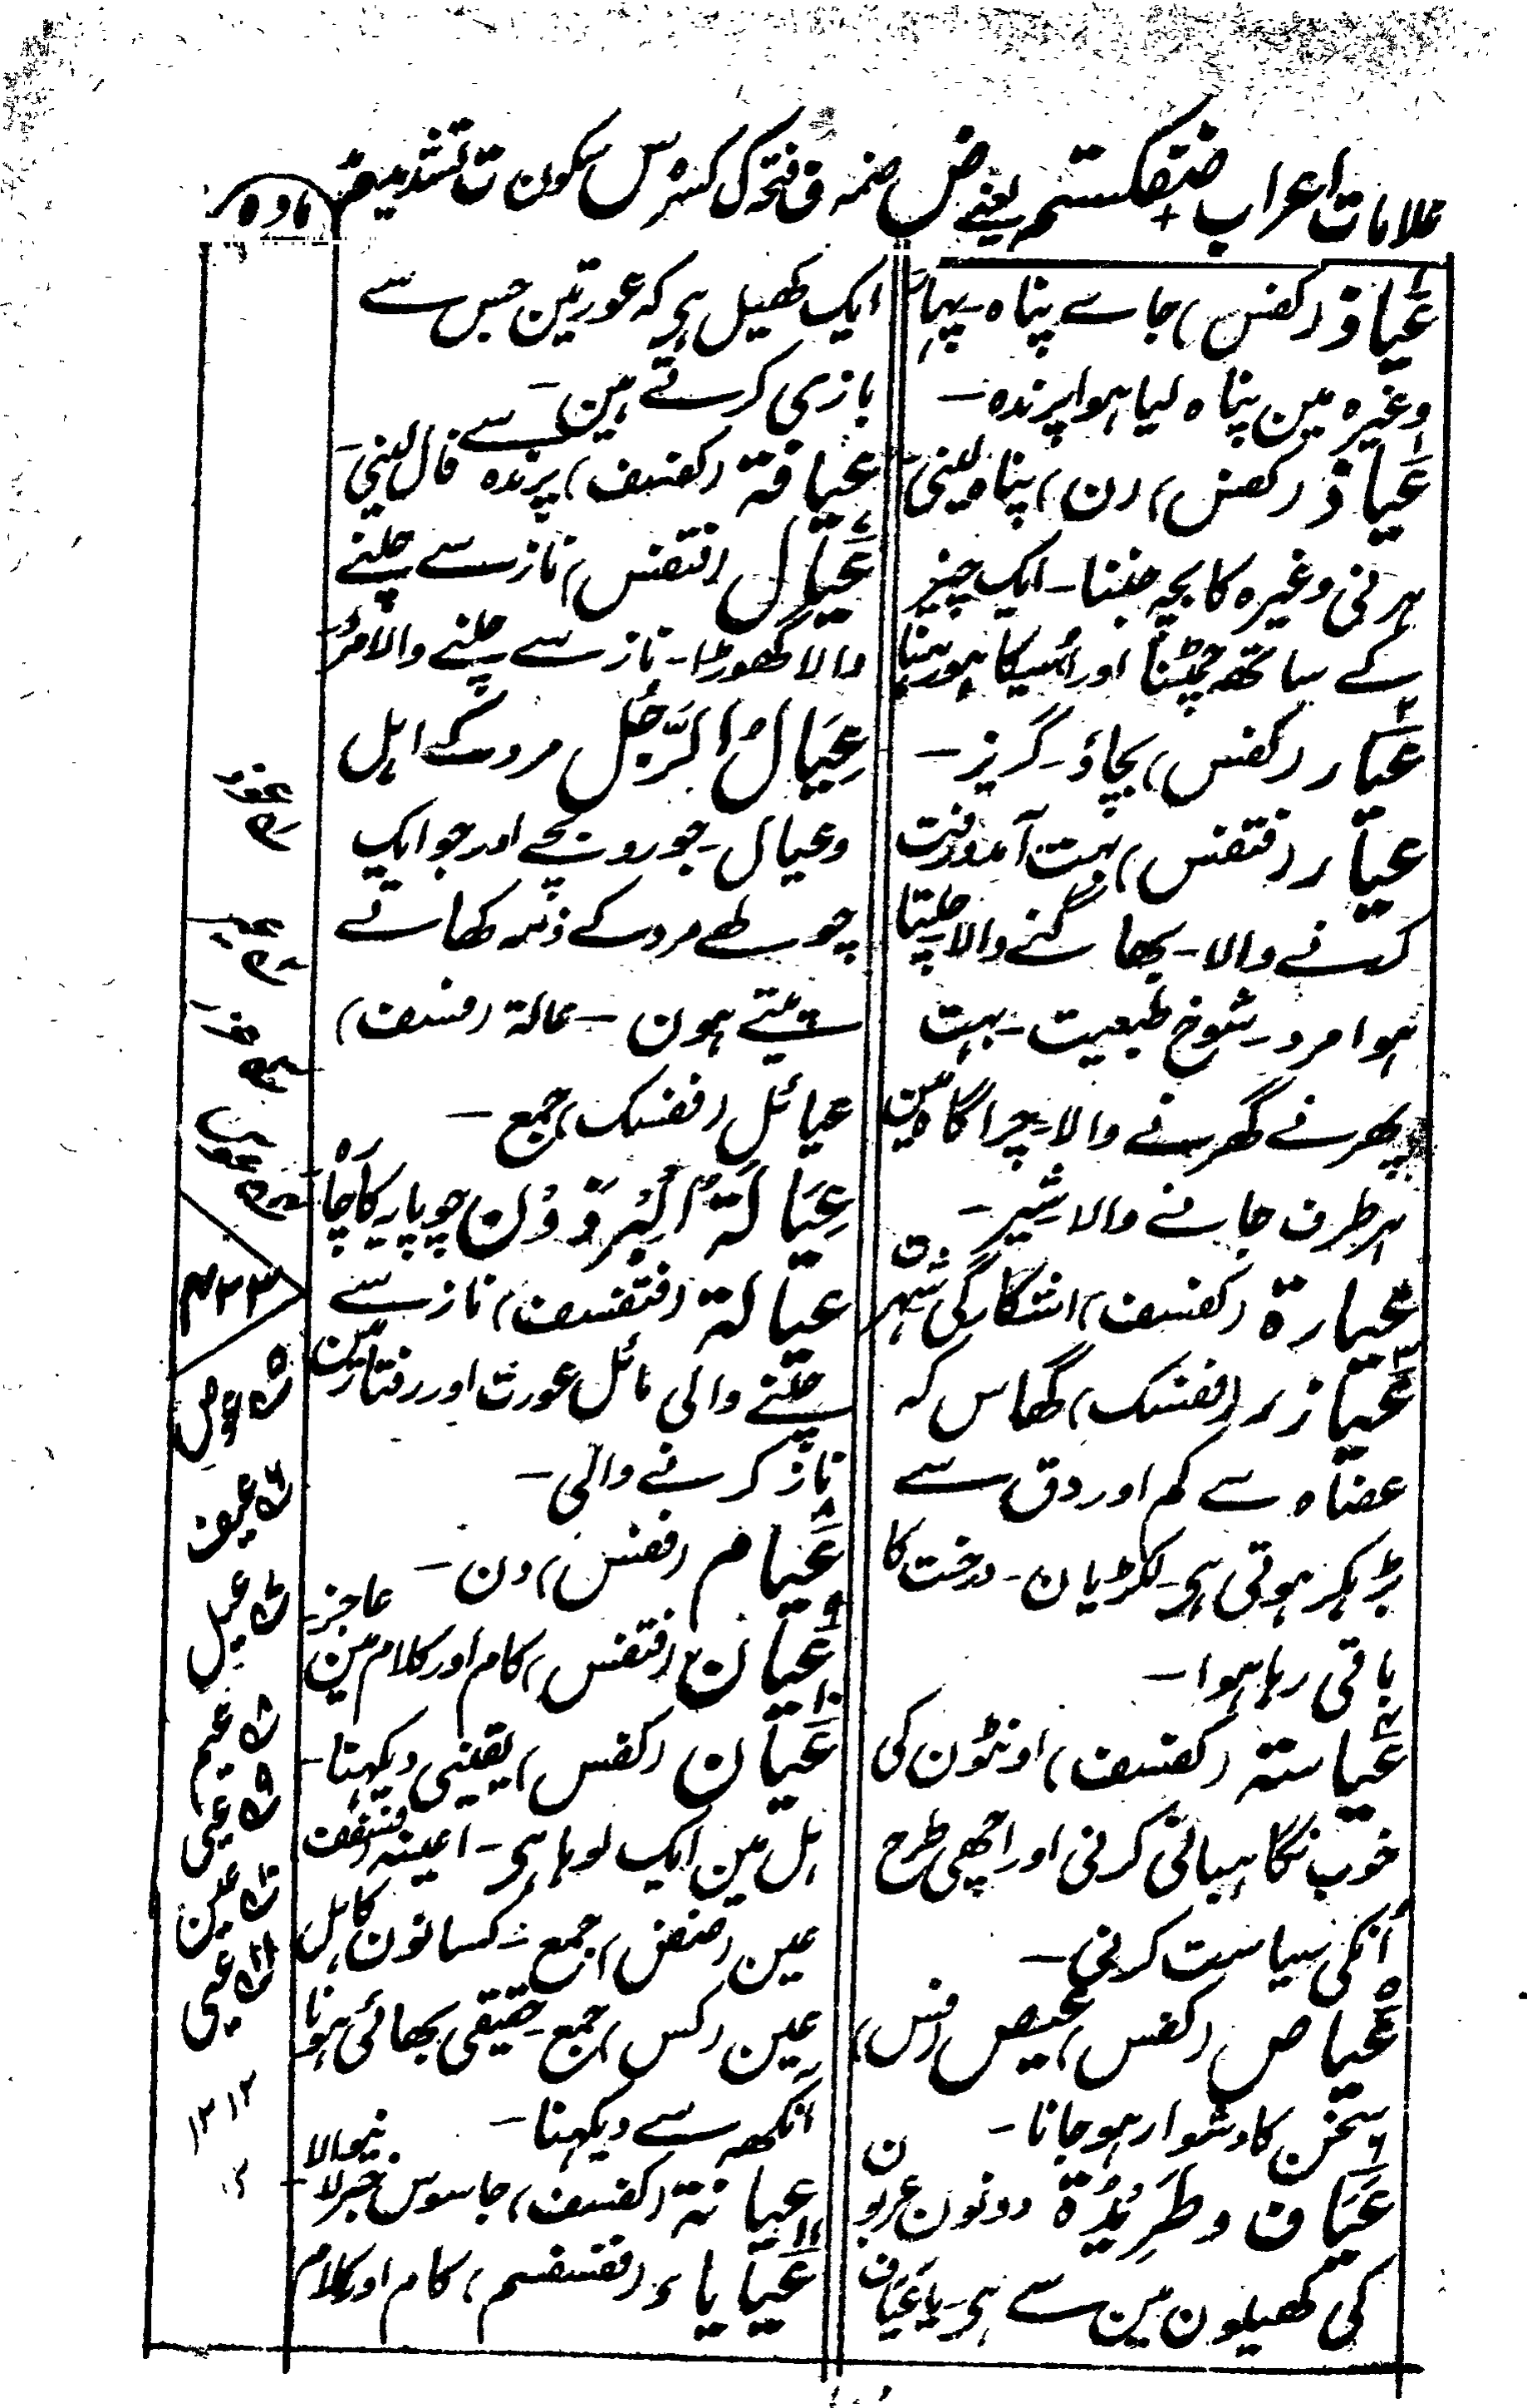 علامات اعراب ضفکستم یعنے ض ضمہ ف فتحہ ک کسرہ س سکون ت تشدید م مد
مادہ
عیاذ (کفس) جاے پناہ۔ پہاڑ
وغیرہ مین پناہ لیا ہوا پرندہ۔
عیاذ (کفس) (ن) پناہ لینی۔
ہرنی وغیرہ کا بچہ جننا۔ ایک چیز
کے ساتھ چمٹنا اور اُسیکا ہو رہنا
عیار (کفس) بچاؤ۔ گریز۔
عیار (فتفس) بہت آمدورفت
کرنے والا۔ بھاگنے والا چلتا
ہوا مرد۔ شوخ طبعیت۔ بہت
پھرنے گھرنے والا۔ چراگاہ مین
ہر طرف جانے والا شیر۔
عیارة (کفسف) اشکارگی شہرت
عیازر (ففسک) گھاس کہ
عضاہ سے کم اور دق سے
بڑہکر ہوتی ہی۔ لکڑیان۔ درخت کا
باقی رہا ہوا۔
عیاستہ (کفسف) اونٹون کی
خوب نگاہبانی کرنی اور اچھی طرح
اُنکی سیاست کرنی۔
عیاص (کفس) عیص (فس)
سخن کا دشوار ہو جانا۔
عیاف و طریدة دونون عربون
کی کھیلون مین سے ہی۔ یا عیاف
ایک کھیل ہی کہ عورتین جس سے
بازی کرتے ہین۔
عیافة (کفسف) پرندہ سے فال لینی۔
عیال (فتفس) ناز سے چلنے
والا گھوڑا۔ ناز سے چلنے والا مرد۔
عیال الرجل مرد کے اہل
وعیال۔ جورو بچے اور جو ایک
چولھے مرد کے ذمہ کھاتے
پیتے ہون۔ عالة (فسف)
عیائل (ففسک) جمع۔
عیالة البرذون چوپایہ کا چارہ
عیالة (فتفسف) ناز سے
چلنے والی مائل عورت اور رفتار مین
ناز کرنے والی۔
عیام (ففس) دن۔
عیان (فتفس) کام اور کلام مین عاجز۔
عیان (کفس) یقینی دیکہنا۔
ہل مین ایک لوہا ہی۔ اعینہ فسکفف
عین (ضفض) جمع۔ کسانون کا ہل
عین (کس) جمع۔ حقیقی بھائی ہونا
آنکھہ سے دیکہنا۔
عیانة (کفسف) جاسوس خبر لانیوالا۔
عیایاء (ففسفسم) کام اور کلام
عوذ
عیر
عیزر
۴۳۳
۵ عوص
۶ عیف
۷ عیل
۸ عیم
۹ عیی
۱۰ عین
۱۱ عیی
۱۲ ۱۲